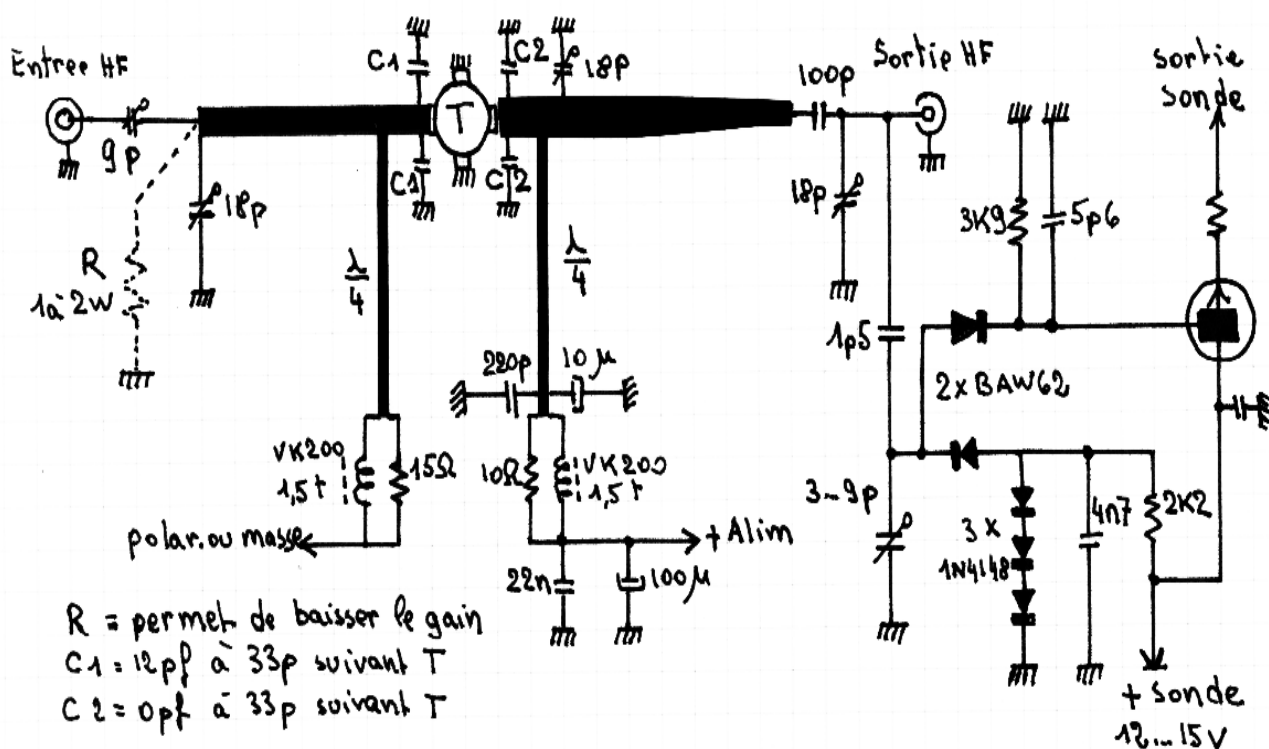 Entree HF
9p
R
1à 2W
18p
C1
C1
T
C2
C2
18p
λ/4
λ/4
100p
Sortie HF
18p
1p5
sortie
sonde
3K9
5p6
2xBAW62
220p
10µ
VK200
1,5t
15Ω
10Ω
VK200
1,5t
polar.ou masse
+ Alim
22n
100µ
3-9p
3x
1N4148
4n7
2K2
+ sonde
12...15V
R = permet de baisser le gain
C1 = 12pf à 33p suivant T
C2 = 0pf à 33p suivant T